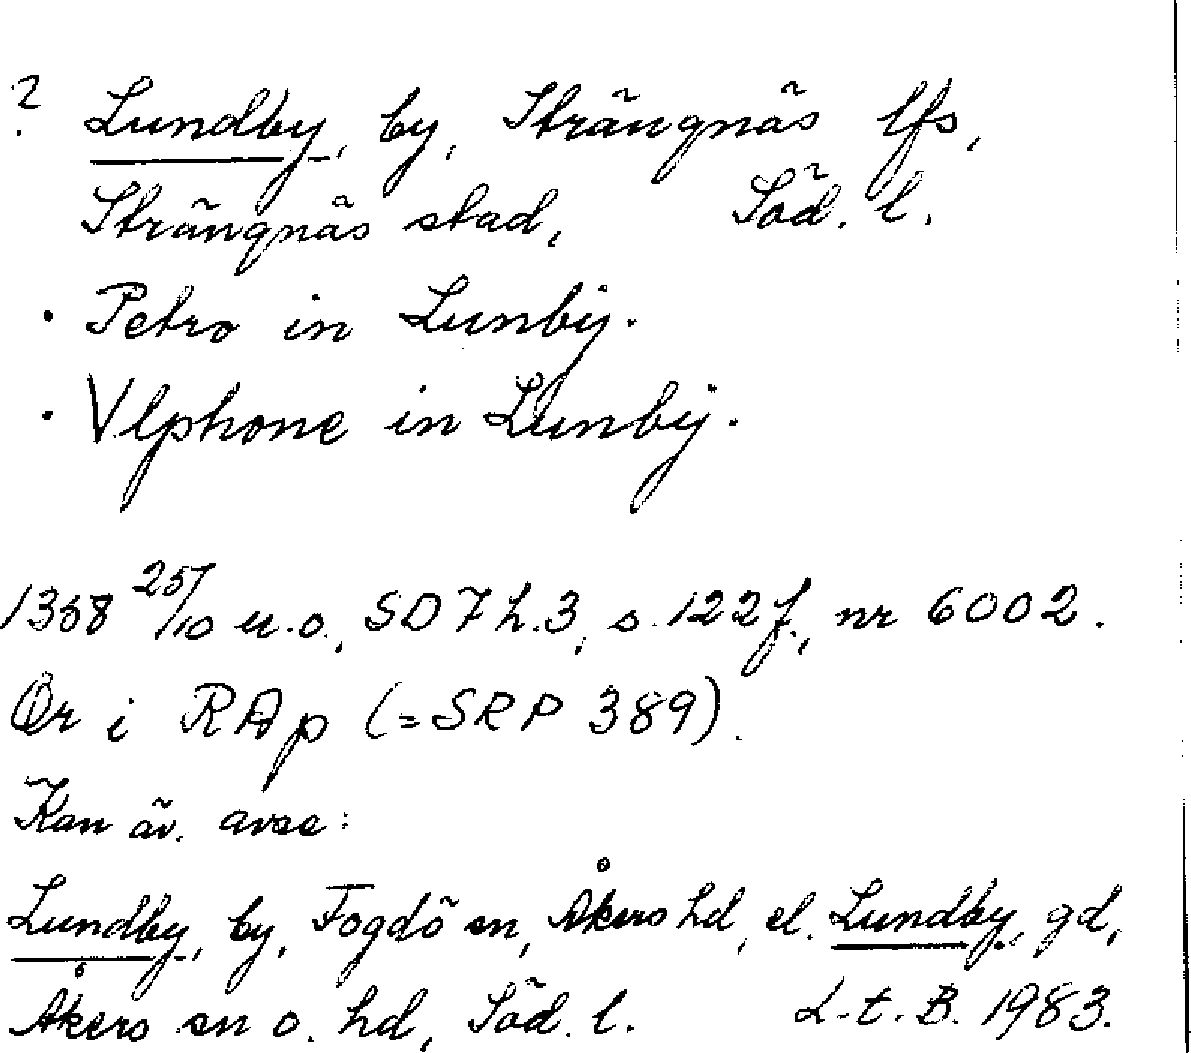 ? Lundby, by, Strängnäs lfs,
Strängnäs stad, Söd. l.
· Petro in Lunbÿ.
· Vlphone in Lunbÿ.
1358 25/10 u.o., SD 7 h. 3, s. 122 f., nr 6002.
Or i RAp (=SRP 389).
Kan äv. avse:
Lundby, by, Fogdö sn, Åkers hd, el. Lundby, gd,
Åkers sn o. hd, Söd. l. L-t. B. 1983.